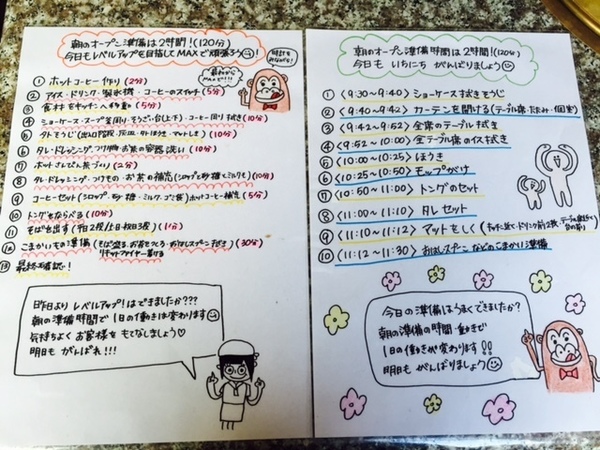 朝のオープン準備は2時間!(120分)
今日もレベルアップを目指してMAXで頑張ろう!
時計を
みながら!
最初から
MAXで!!!
① ホットコーヒー作り(2分)
② アイス・ドリンク・製氷機・コーヒーのスイッチ(5分)
③ 食材をキッチンへ(5分)
④ ショーケース・スープ(上下)・コーヒー回り拭き(10分)
⑤ (10分)
⑥ タレ・ドレッシング・お茶の容器洗い(10分)
⑦ ホットさんぴん茶づくり(2分)
⑧ タレ・ドレッシング・つけもの・お茶の補充(10分)
⑨ コーヒーセット(シロップ・砂糖・ミルク・ゴミ袋)ホットコーヒー補充(5分)
⑩ トングをならべる(10分)
⑪ そばを出す(1分)
⑫ こまかいもの準備(30分)
⑬ 最終確認!
昨日よりレベルアップ!はできましたか???
朝の準備時間で1日の働きは変わります
気持ちよくお客様をもてなしましょう♡
明日もがんばれ!!!
朝のオープン準備時間は2時間!(120分)
今日もいちにちがんばりましょう
① <9:30〜9:40> ショーケース拭きそうじ
② <9:40〜9:42> カーテンを開ける(テーブル席・たたみ・個室)
③ <9:42〜9:52> 全席のテーブル拭き
④ <9:52〜10:00> 全テーブル席のイス拭き
⑤ <10:00〜10:25> ほうき
⑥ <10:25〜10:50> モップがけ
⑦ <10:50〜11:00> トングのセット
⑧ <11:00〜11:10> タレセット
⑨ <11:10〜11:12> マットをしく
⑩ <11:12〜11:30> おはし・スプーンなどのこまかい準備
今日の準備はうまくできましたか?
朝の準備の時間・動きで
1日の働きが変わります!!
明日もがんばりましょう